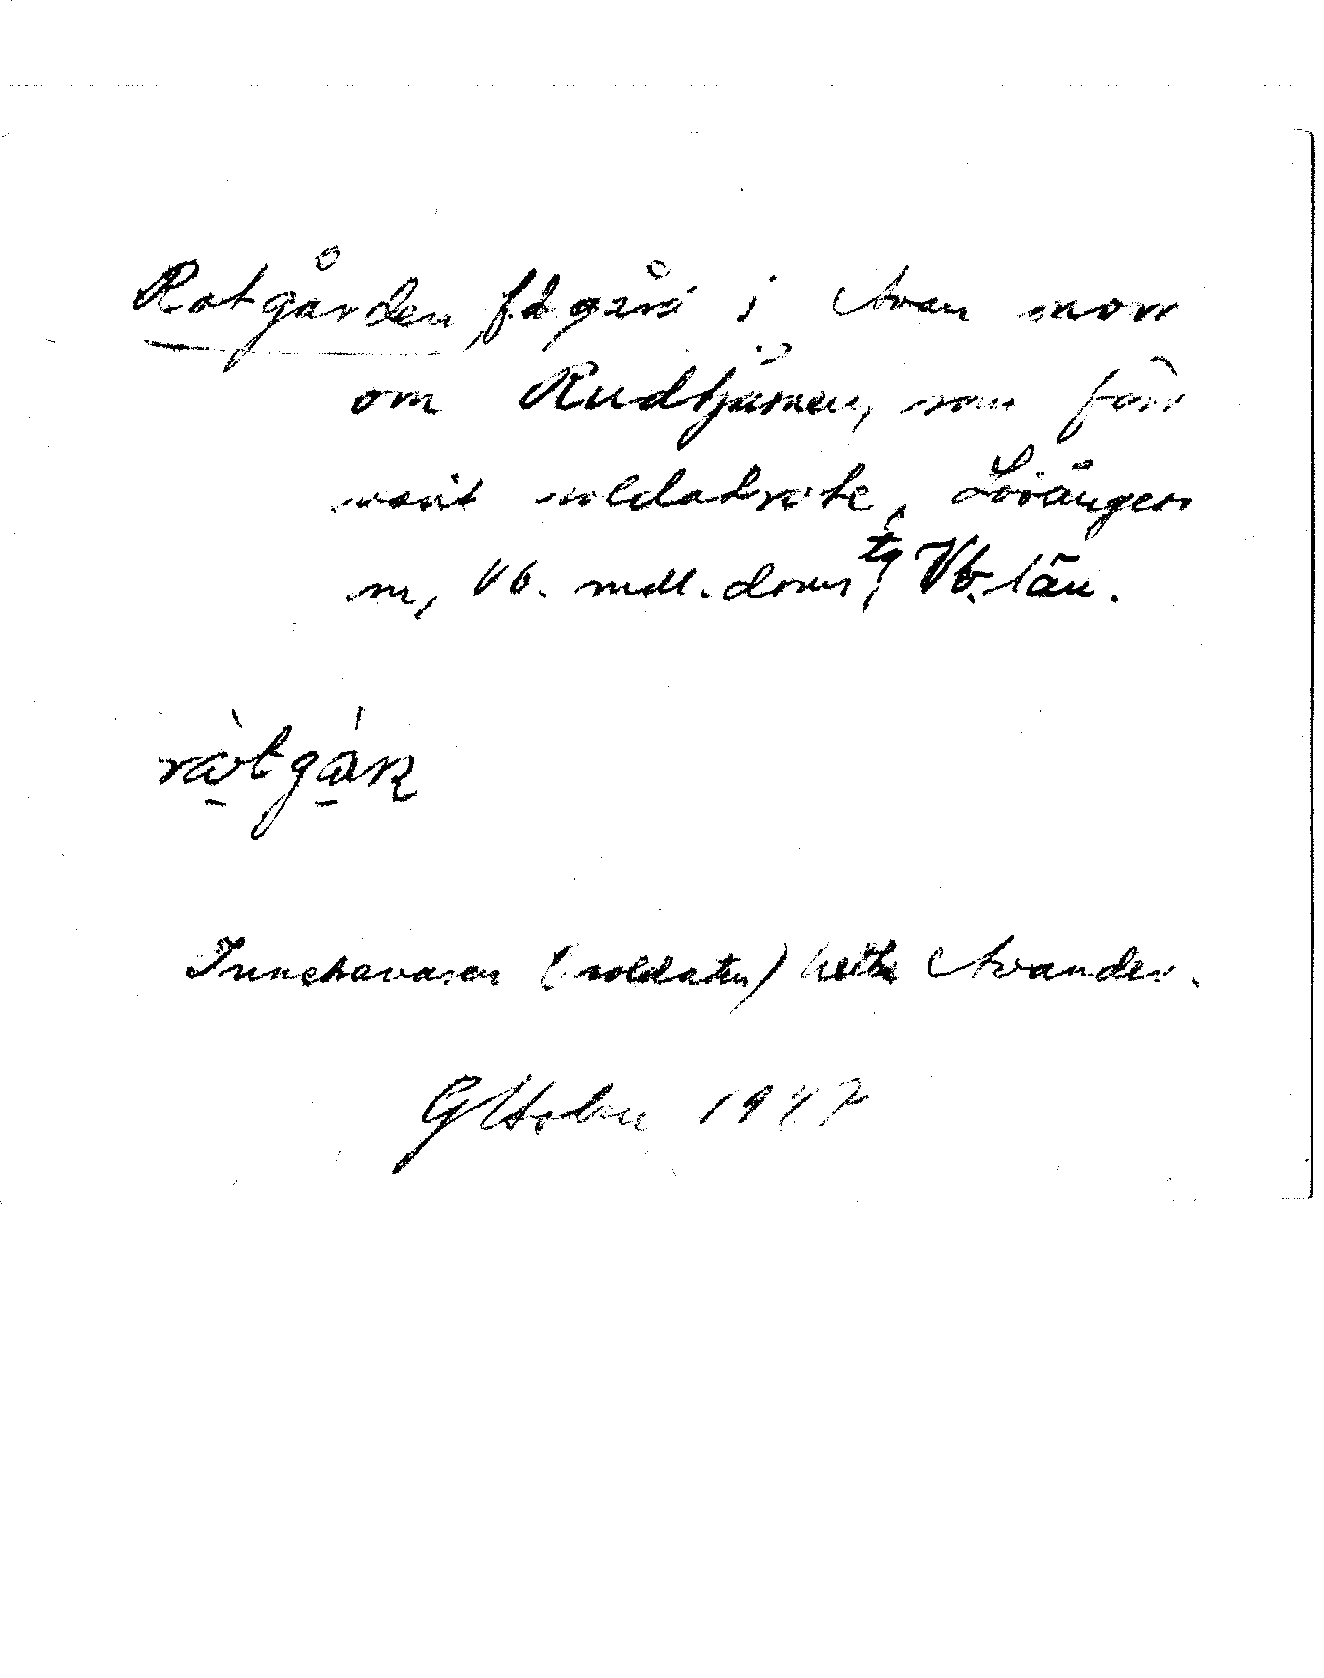 Rotgården, f.d. gård i Avan norr
om Rudtjärnen, som förr
varit soldatrote, Lövångers
sn, Vb. mdl. doms tg, Vb. län.
råtgåṛn
Innehavaren (soldaten) hette Avander.
G Holm 1947